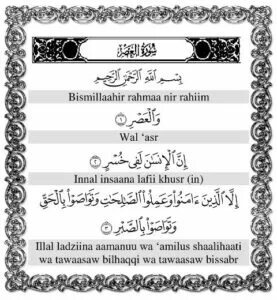 سُورَةُ العَصْرِ
بِسْمِ اللَّهِ الرَّحْمَٰنِ الرَّحِيمِ
Bismillaahir rahmaa nir rahiim
وَالْعَصْرِ ١
Wal ‘asr
إِنَّ الْإِنسَٰنَ لَفِي خُسْرٍ ٢
Innal insaana lafii khusr (in)
إِلَّا الَّذِينَ ءَامَنُوا وَعَمِلُوا الصَّٰلِحَٰتِ وَتَوَاصَوْا بِالْحَقِّ
وَتَوَاصَوْا بِالصَّبْرِ ٣
Illal ladziina aamanuu wa ‘amilus shaalihaati
wa tawaasaw bilhaqqi wa tawaasaw bissabr